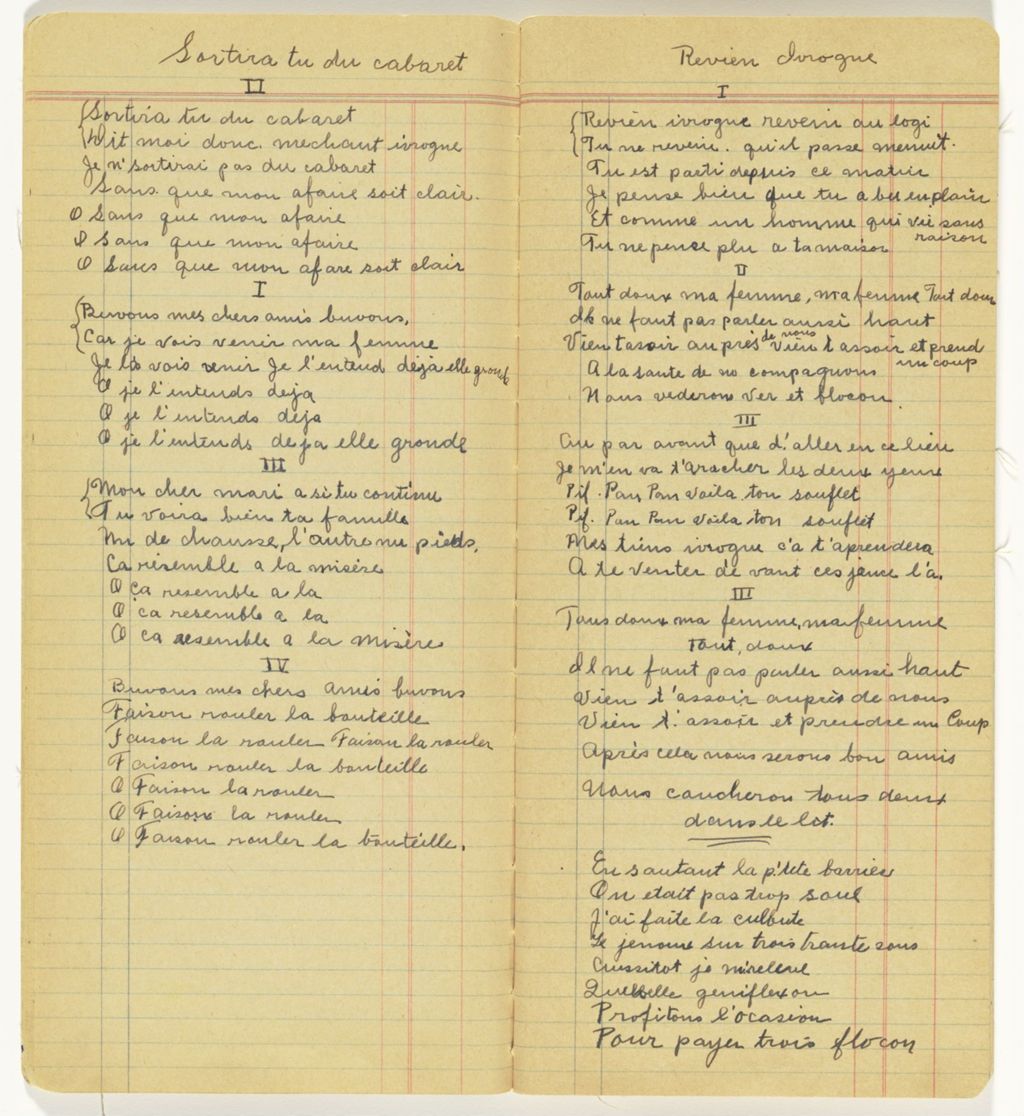 Sortira tu du cabaret
II
Sortira tu du cabaret
Dit moi donc. mechant ivrogne
Je n'sortirai pas du cabaret
Sans que mon afaire soit clair.
O Sans que mon afaire
O Sans que mon afaire
O Sans que mon afare soit clair
I
Buvons mes chers amis buvons,
Car je vois venir ma femme
Je la vois venir Je l'entend déja elle gronde
O je l'intends deja
O je l'intends deja
O je l'intends deja elle gronde
III
Mon cher mari a si tu continu
Tu voira bien ta famille
Nu de chausse, l'autre nu pieds,
Ca résemble a la misère
O ça resemble a la
O ça resemble a la
O ca resemble a la misère
IV
Buvons mes chers amis buvons
Faison rouler la bouteille
Faison la rouler Faison la rouler
Faison rouler la bouteille
O Faison la rouler
O Faison la rouler
O Faison rouler la bouteille.
Revien Ivrogne
I
Revien ivrogne reveni au logi
Tu ne reveni. qu'il passe menuit.
Tu est parti depuis ce matin
Je pense bien que tu a bu en plain
Et comme un homme qui vie sans raison
Tu ne pense plu a ta maison
II
Tout doux ma femme, ma femme Tout doux
Il ne faut pas parler aussi haut
Vien tasoir auprès de nous vien t assoir et prend un coup
A la sante de no compagnons
Nous vederon ver et flocon
III
Au par avant que d'aller en ce lieu
Je m'en va t'aracher les deux yeux
Pif. Pan Pan Voila ton souflet
Pif. Pan Pan Voila ton souflet
Mes tiens ivrogne c'a t'aprendera
A te venter de vant ces jence l'à.
III
Tous doux ma femme, ma femme
Tout, doux
Il ne faut pas parler aussi haut
Vien t'assoir auprès de nous
Vien t'assoir et prendre un Coup
Après cela nous serons bon amis
Nous coucheron tous deux
dans le lit.
En sautant la p'tite barrière
On etait pas trop soul
J'ai faite la culbute
Le jenoux sur trois trante sous
Aussitot je m'releve
Quelle geniflexon
Profitons l'ocasion
Pour payer trois flocon